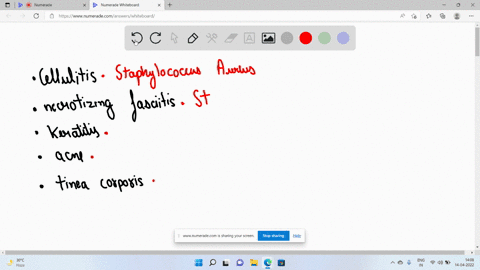 Numerade
Numerade Whiteboard
https://www.numerade.com/answers/whiteboard/
• Cellulitis • Staphylococcus Aurius
• necrotizing fasciitis • St
• Keratidis •
• acne •
• tinea corporis •
www.numerade.com is sharing your screen. Stop sharing Hide
30°C
ENG
IN
14:06
14-04-2022